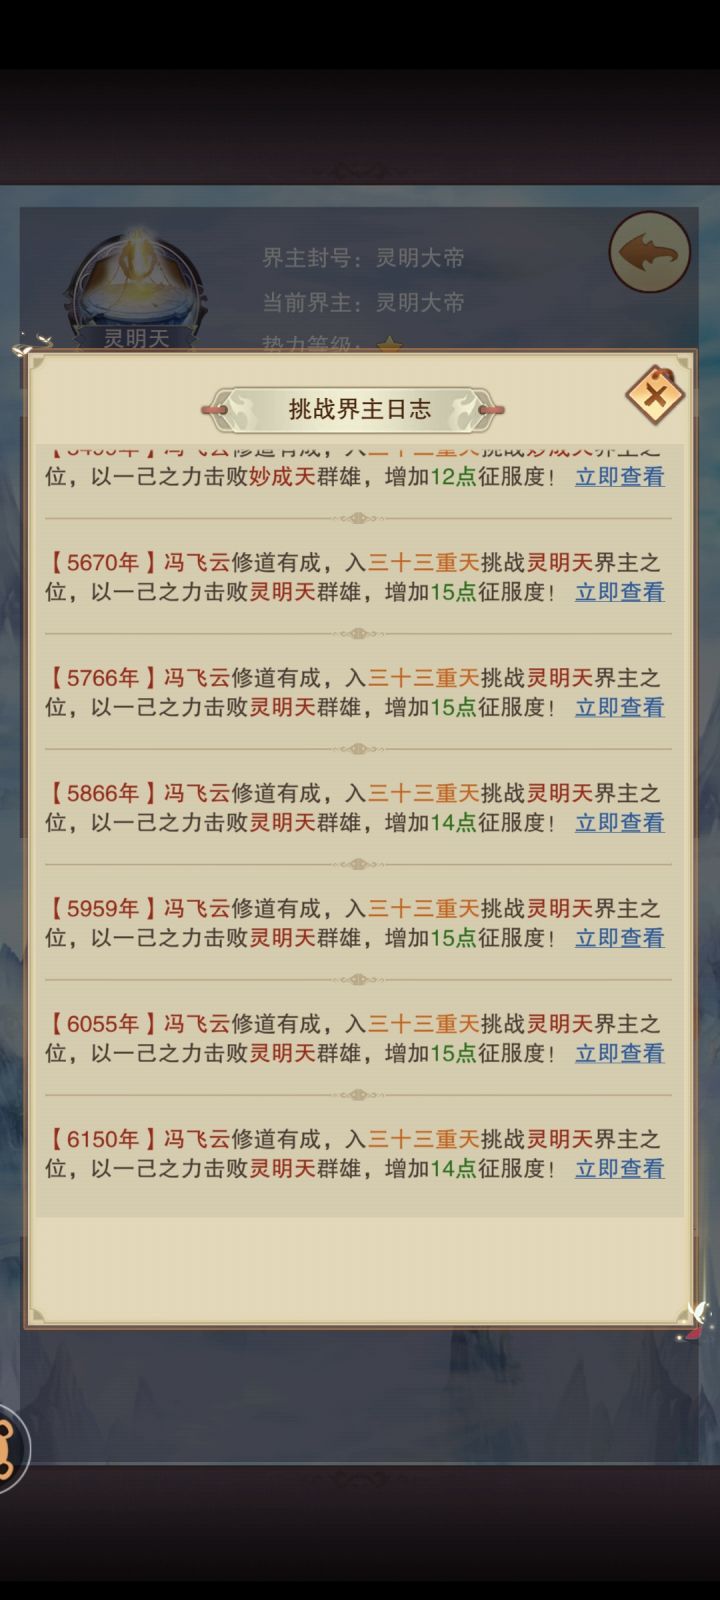 界主封号：灵明大帝
当前界主：灵明大帝
势力等级：
灵明天
挑战界主日志
冯飞云修道有成，入三十三重天挑战妙成天界主之
位，以一己之力击败妙成天群雄，增加12点征服度！ 立即查看
【5670年】冯飞云修道有成，入三十三重天挑战灵明天界主之
位，以一己之力击败灵明天群雄，增加15点征服度！ 立即查看
【5766年】冯飞云修道有成，入三十三重天挑战灵明天界主之
位，以一己之力击败灵明天群雄，增加15点征服度！ 立即查看
【5866年】冯飞云修道有成，入三十三重天挑战灵明天界主之
位，以一己之力击败灵明天群雄，增加14点征服度！ 立即查看
【5959年】冯飞云修道有成，入三十三重天挑战灵明天界主之
位，以一己之力击败灵明天群雄，增加15点征服度！ 立即查看
【6055年】冯飞云修道有成，入三十三重天挑战灵明天界主之
位，以一己之力击败灵明天群雄，增加15点征服度！ 立即查看
【6150年】冯飞云修道有成，入三十三重天挑战灵明天界主之
位，以一己之力击败灵明天群雄，增加14点征服度！ 立即查看